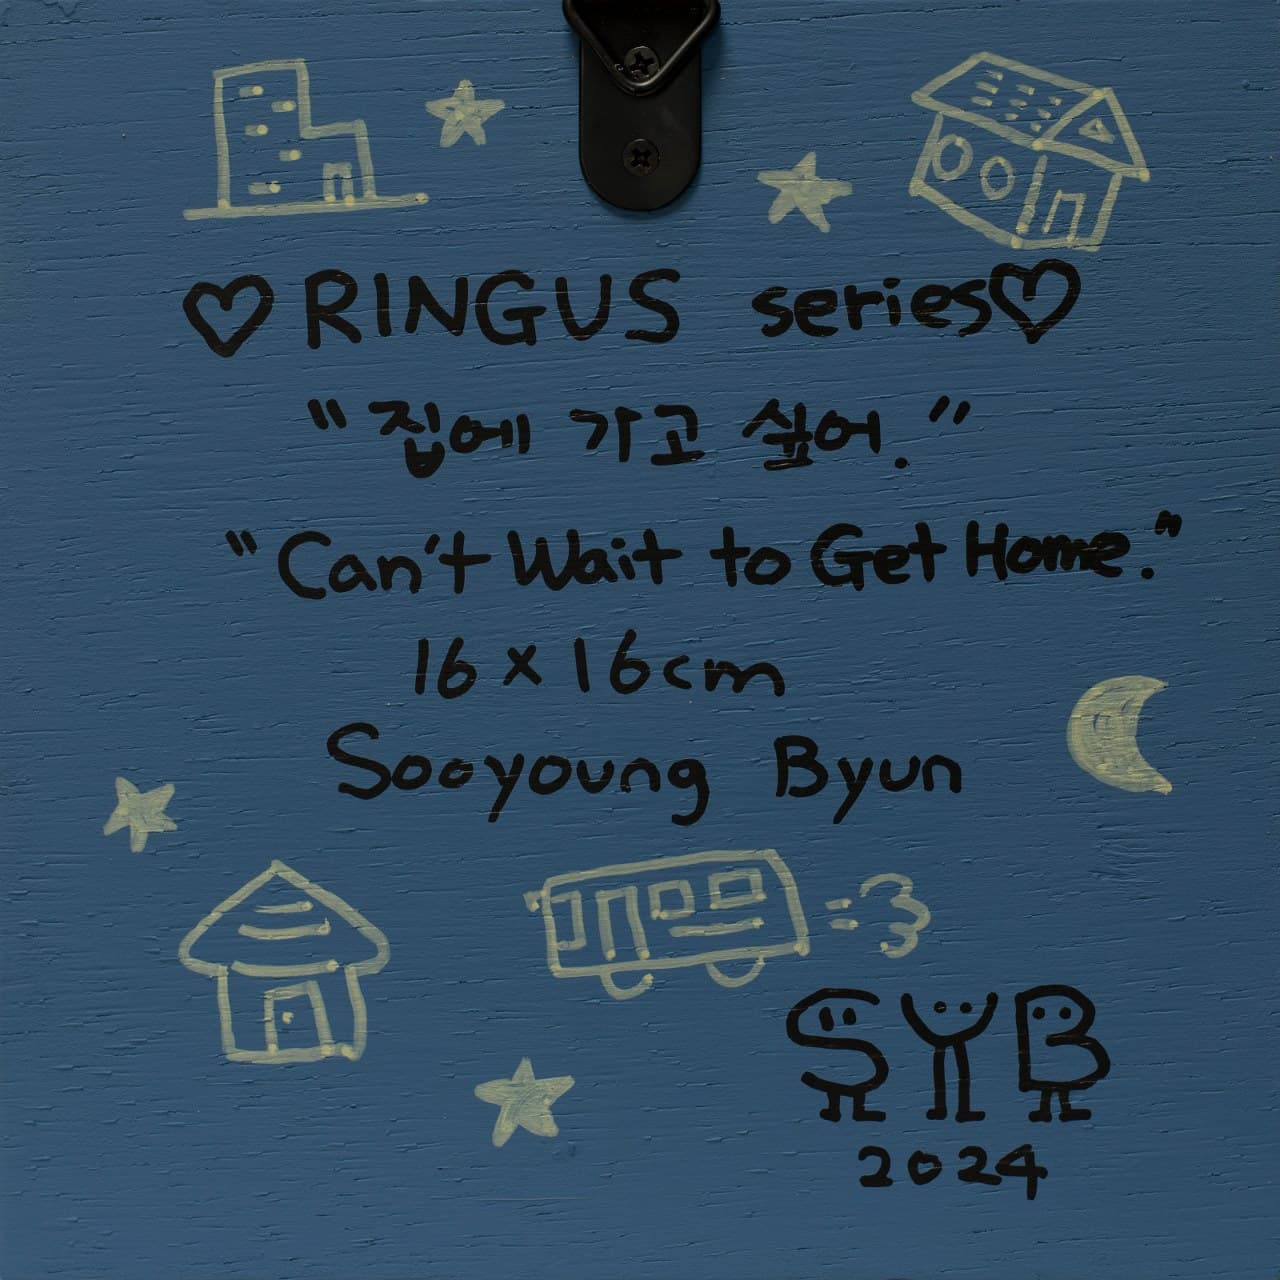 ♡ RINGUS series♡
"집에 가고 싶어."
"Can't Wait to Get Home."
16 x 16cm
Sooyoung Byun
SYB
2024